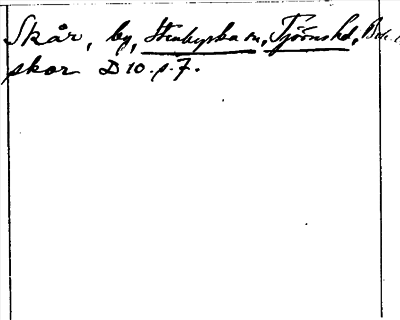 Skår, by, Stenkyrka sn, Tjörns hd, Boh.
skor D 10. s. 7.